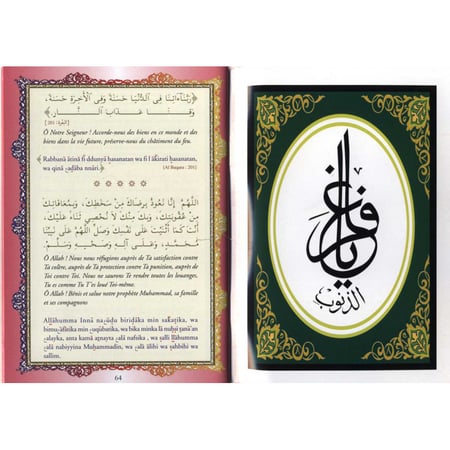 ﴿رَبَّنَا ءَاتِنَا فِى ٱلدُّنْيَا حَسَنَةً وَفِى ٱلْأَخِرَةِ حَسَنَةً،
وَقِنَا عَذَابَ ٱلنَّارِ﴾
[البقرة : 201]
Ô Notre Seigneur ! Accorde-nous des biens en ce monde et des
biens dans la vie future, préserve-nous du châtiment du feu.
Rabbanâ âtinâ fi ddunyâ ḥasanatan wa fi l âkirati ḥasanatan,
wa qinâ ʿaḏâba nnâri. [Al Baqara : 201]
اللَّهُمَّ إِنَّا نَعُوذُ بِرِضَاكَ مِنْ سَخَطِكَ، وَبِمُعَافَاتِكَ
مِنْ عُقُوبَتِكَ، وَبِكَ مِنْكَ لَا نُحْصِي ثَنَاءً عَلَيْكَ،
أَنْتَ كَمَا أَثْنَيْتَ عَلَى نَفْسِكَ وَصَلِّ اللَّهُمَّ عَلَى نَبِيِّنَا
مُحَمَّدٍ، وَعَلَى آلِهِ وَصَحْبِهِ وَسَلِّمْ
Ô Allah ! Nous nous réfugions auprès de Ta satisfaction contre
Ta colère, auprès de Ta protection contre Ta punition, auprès de
Toi contre Toi. Nous ne saurons Te rendre toutes les louanges,
Tu es comme Tu T'es loué Toi-même.
Ô Allah ! Bénis et salue notre prophète Muhammad, sa famille
et ses compagnons
Allâhumma Innâ naʿûḏu biriḍâka min saḵaṭika, wa
bimuʿâfâtika min ʿuqûbatika, wa bika minka lâ nuḥṣi ṯanâ'an
ʿalayka, anta kamâ aṯnayta ʿalâ nafsika , wa ṣalli llâhumma
ʿalâ nabiyyina Muḥammadin, wa ʿalâ âlihi wa ṣaḥbihi wa
sallim.
64
يا غافر
الذنوب